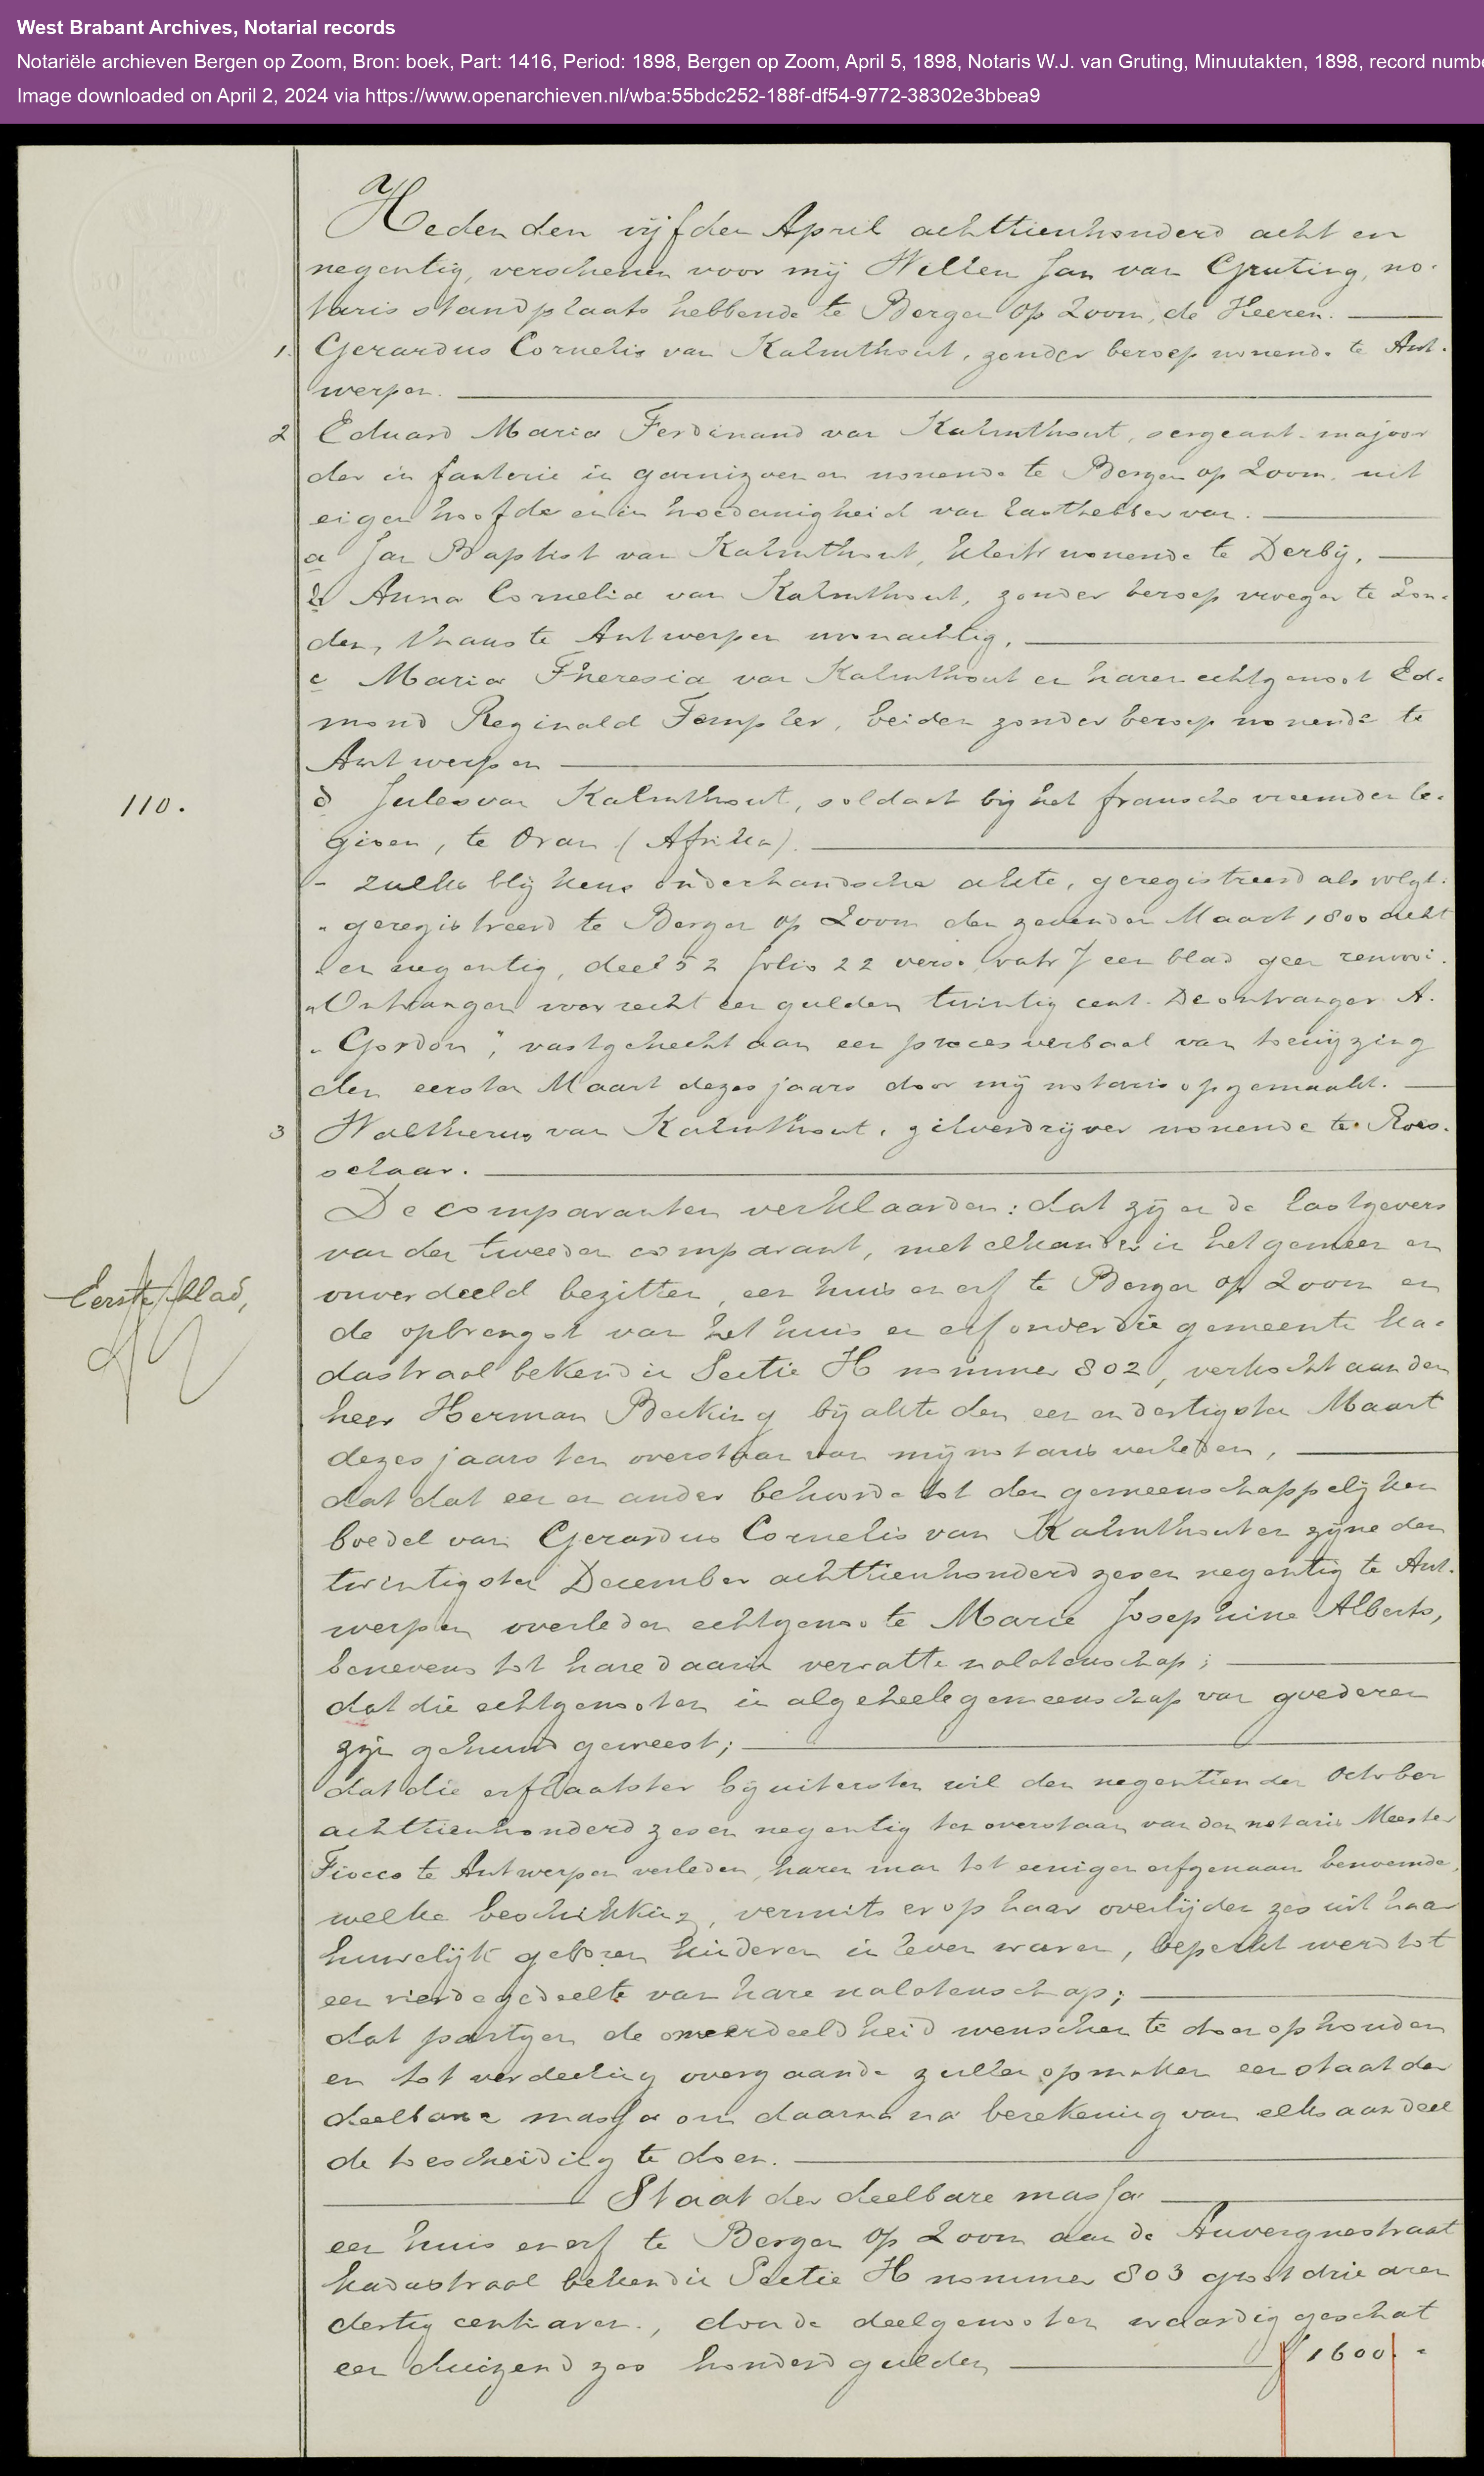 West Brabant Archives, Notarial records
Notariële archieven Bergen op Zoom, Bron: boek, Part: 1416, Period: 1898, Bergen op Zoom, April 5, 1898, Notaris W.J. van Gruting, Minuutakten, 1898, record numbe
Image downloaded on April 2, 2024 via https://www.openarchieven.nl/wba:55bdc252-188f-df54-9772-38302e3bbea9
Heden den vijfden April achttienhonderd acht en
negentig, verschenen voor mij Willem Jan van Gruting, no-
taris standplaats hebbende te Bergen op Zoom, de Heeren.
1. Gerardus Cornelis van Kalmthout, zonder beroep wonende te Ant-
werpen.
2 Eduard Maria Ferdinand van Kalmthout, sergeant-majoor
der infanterie in garnizoen en wonende te Bergen op Zoom, uit
eigen hoofde en in hoedanigheid van lasthebber van.
a Jan Baptist van Kalmthout, klerk wonende te Derby.
b Anna Cornelia van Kalmthout, zonder beroep vroeger te Lon-
den, thans te Antwerpen woonachtig.
c Maria Theresia van Kalmthout en haren echtgenoot Ed-
mond Reginald Templer, beiden zonder beroep wonende te
Antwerpen
110.
d Jules van Kalmthout, soldaat bij het fransche vreemden le-
gioen, te Oran (Afrika).
- zulks blijkens onderhandsche akte, geregistreerd als volgt:
" geregistreerd te Bergen op Zoom den zevenden Maart 1800 acht
" en negentig, deel 52 folio 22 verso vak 7 een blad geen renvooi.
" Ontvangen voor recht een gulden twintig cent. De ontvanger A.
" Gordon", vastgehecht aan een procesverbaal van toewijzing
den eersten Maart dezes jaars door mij notaris opgemaakt.
3 Waltherus van Kalmthout, zilverdrijver wonende te Roes-
selaar.
De comparanten verklaarden: dat zij en de lastgevers
van den tweeden comparant, met elkander in het gemeen en
Eerste blad,
onverdeeld bezitten, een huis en erf te Bergen op Zoom en
de opbrengst van het huis en erf onder die gemeente ka-
dastraal bekend in Sectie H nommer 802, verkocht aan den
heer Herman Becking bij akte den een en dertigsten Maart
dezes jaars ten overstaan van mij notaris verleden,
dat dat een en ander behoorde tot den gemeenschappelijken
boedel van Gerardus Cornelis van Kalmthout en zijne den
twintigsten December achttienhonderd zes en negentig te Ant-
werpen overleden echtgenoote Marie Josephine Alberts,
benevens tot hare daarin vervatte nalatenschap;
dat die echtgenooten in algeheele gemeenschap van goederen
zijn gehuwd geweest;
dat die erflaatster bij uitersten wil den negentienden October
achttienhonderd zes en negentig ten overstaan van den notaris Meester
Fiocco te Antwerpen verleden, haren man tot eenigen erfgenaam benoemde,
welke beschikking, vermits er op haar overlijden zes uit haar
huwelijk geboren kinderen in leven waren, beperkt werd tot
een vierde gedeelte van hare nalatenschap;
dat partijen de onverdeeldheid wenschen te doen ophouden
en tot verdeeling overgaande zullen opmaken een staat der
deelbare massa om daarna na berekening van elks aandeel
de toescheiding te doen.
Staat der deelbare massa
een huis en erf te Bergen op Zoom aan de Auvergnestraat
kadastraal bekend in Sectie H nommer 803 groot drie aren
dertig centiaren., door de deelgenooten waardig geschat
een duizend zes honderd gulden f 1600. "